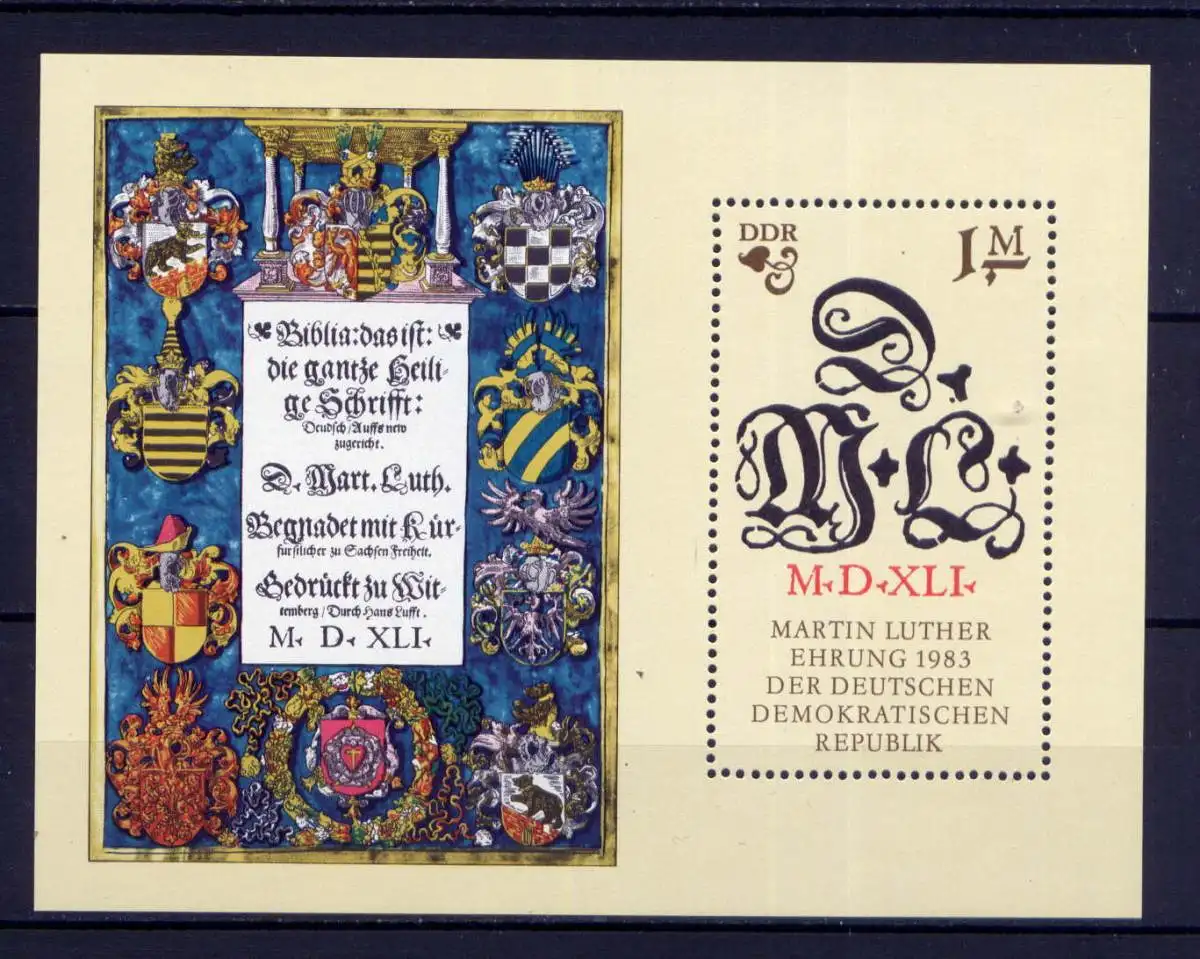 Biblia: das ist:
die gantze Heili-
ge Schrifft:
Deudsch / Auffs new
zugericht.
D. Mart. Luth.
Begnadet mit Kür-
furstlicher zu Sachsen Freiheit.
Gedrückt zu Wit-
temberg / Durch Hans Lufft.
M. D. XLI.
DDR
1 M
D.
M. L.
M.D.XLI.
MARTIN LUTHER
EHRUNG 1983
DER DEUTSCHEN
DEMOKRATISCHEN
REPUBLIK